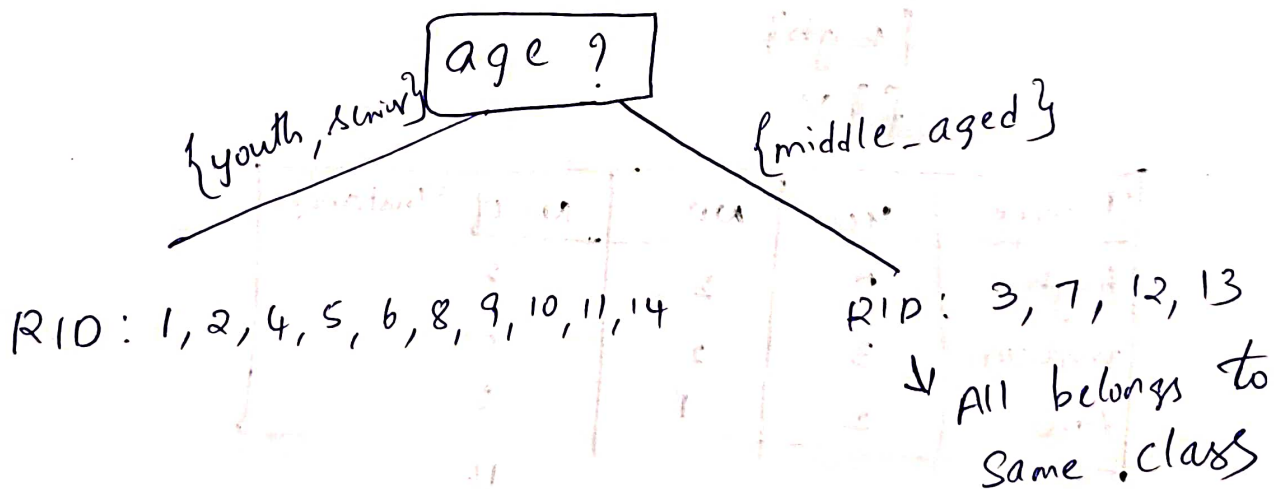 age ?
{youth, senior}
{middle_aged}
RID: 1, 2, 4, 5, 6, 8, 9, 10, 11, 14
RID: 3, 7, 12, 13
↓ All belongs to
same class